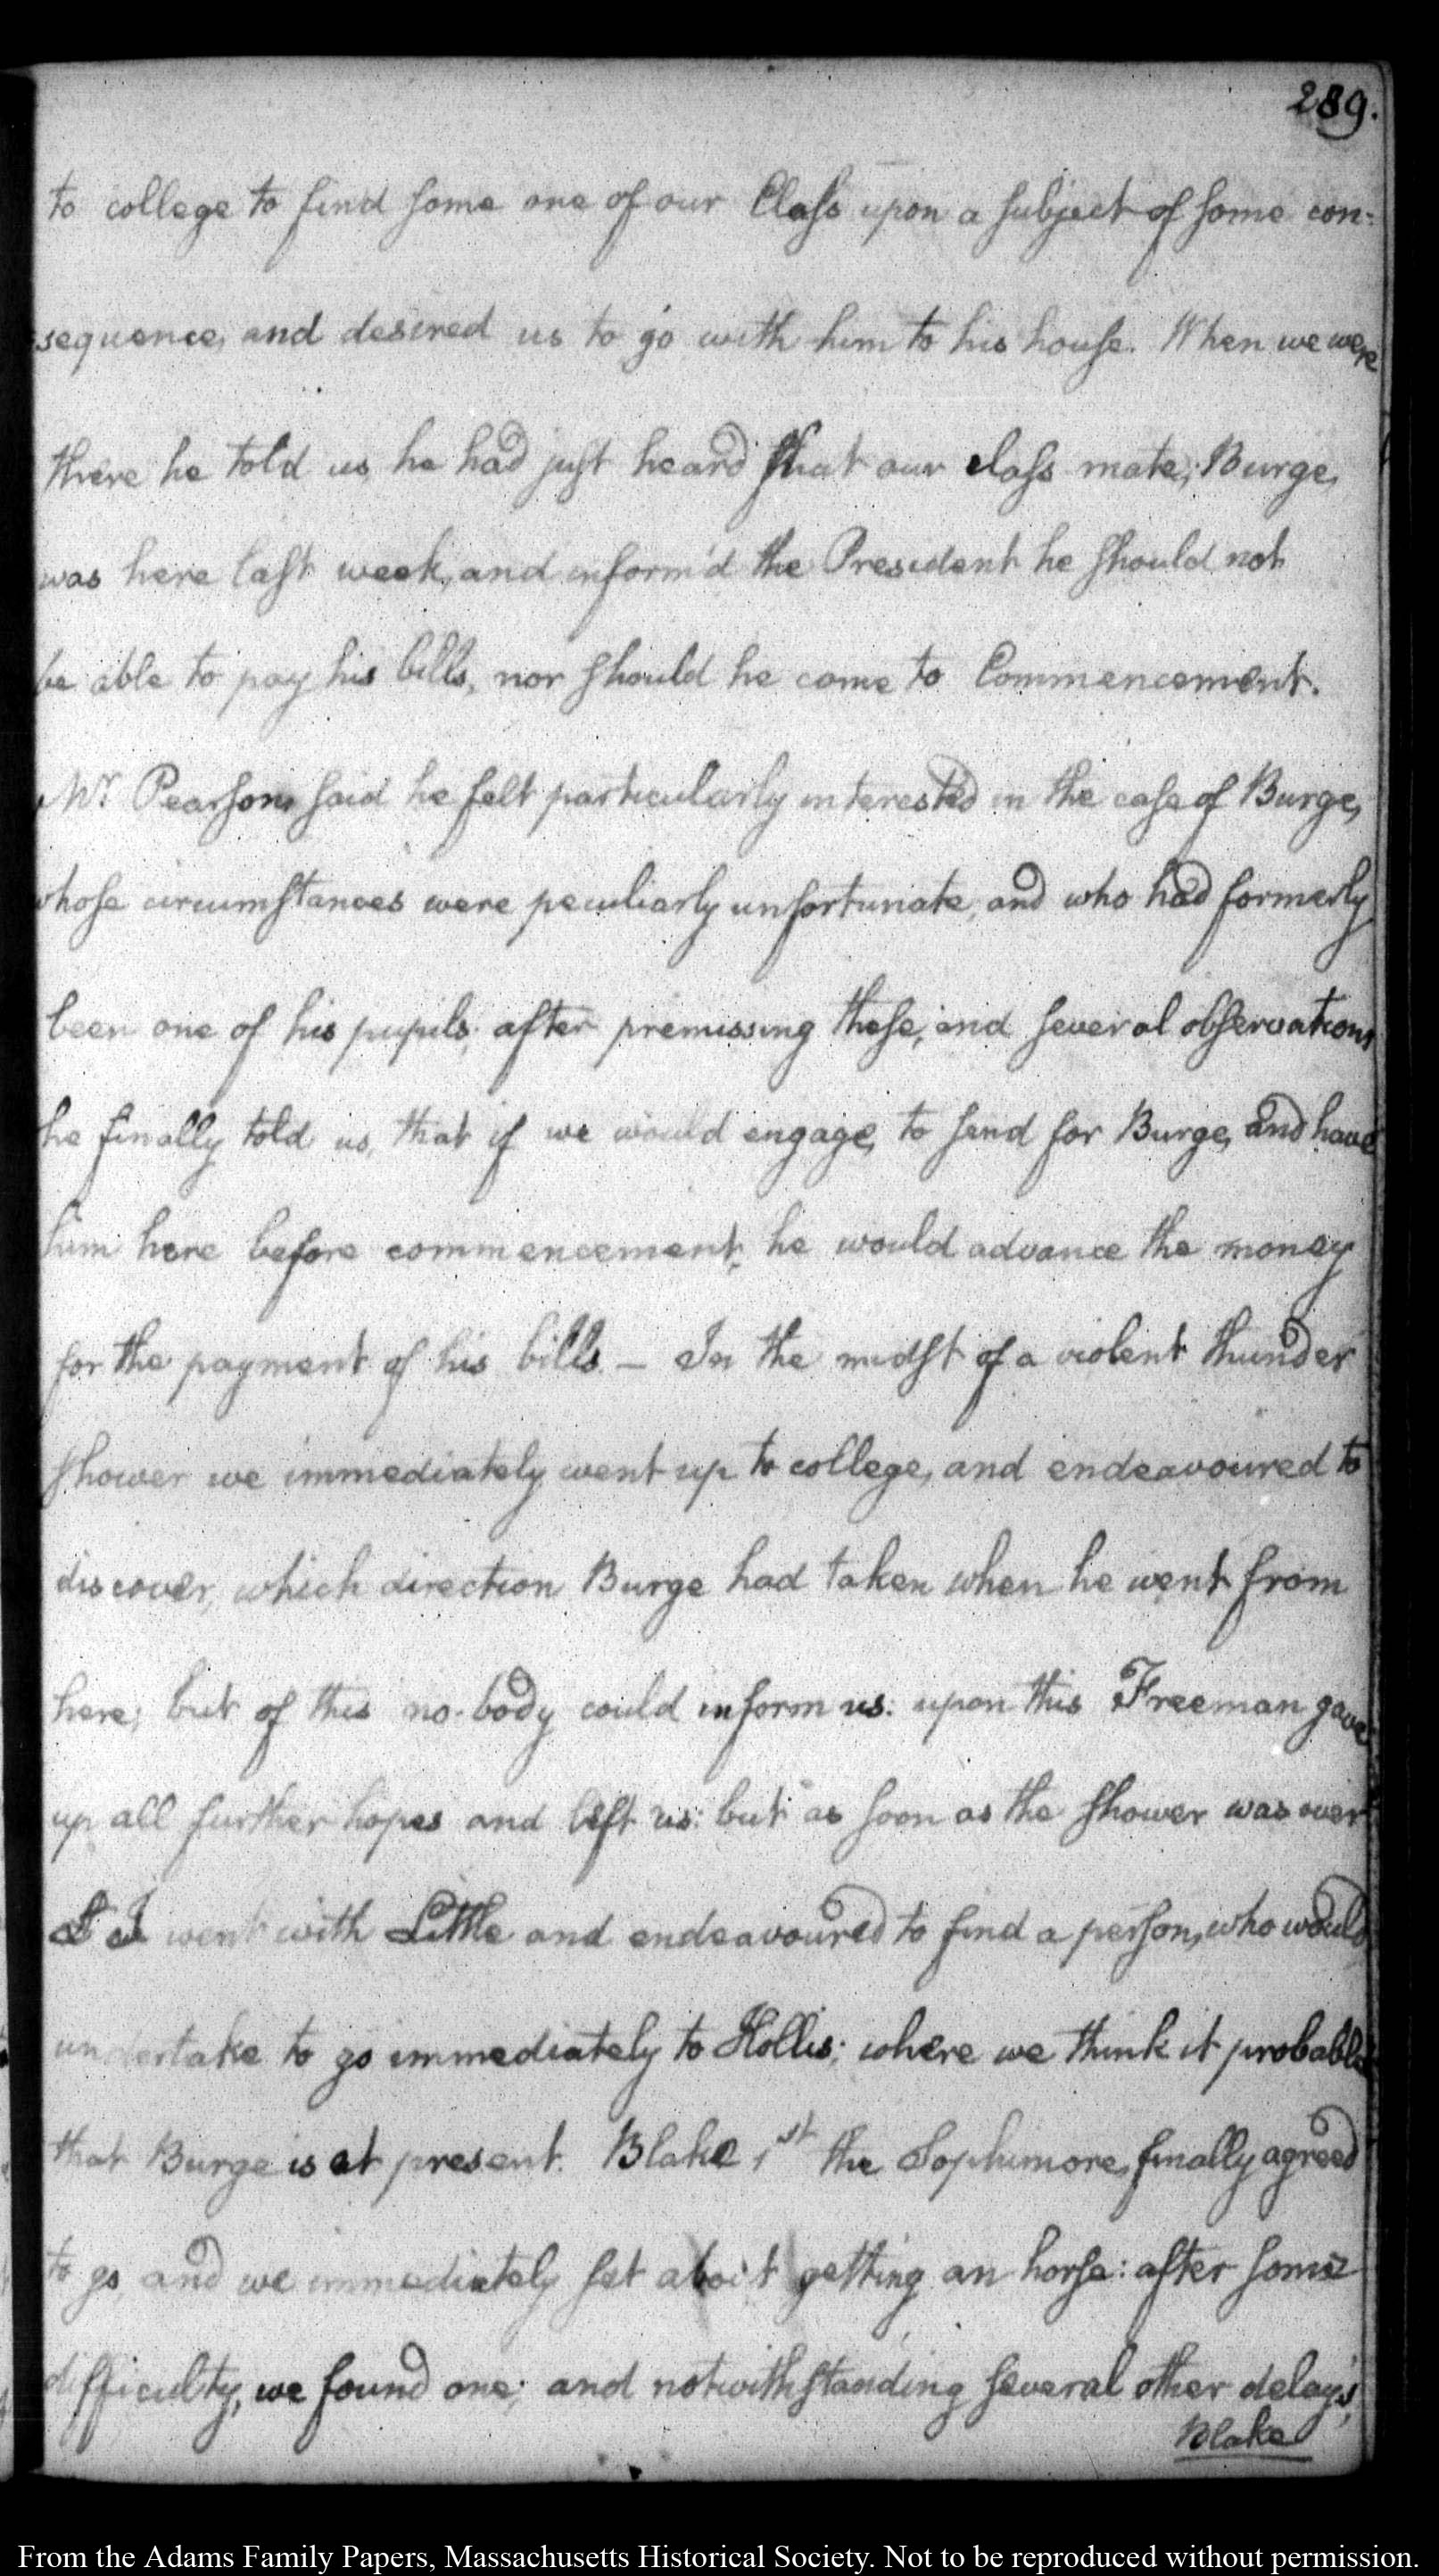 289.
to college to find some one of our Class upon a subject of some con-
sequence, and desired us to go with him to his house. When we were
there he told us he had just heard that our class mate, Burge,
was here last week, and inform'd the President he should not
be able to pay his bills, nor should he come to Commencement.
Mr Pearson said he felt particularly interested in the case of Burge,
whose circumstances were peculiarly unfortunate, and who had formerly
been one of his pupils; after premissing these, and several observations
he finally told us, that if we would engage, to send for Burge, and have
him here before commencement, he would advance the money
for the payment of his bills — In the midst of a violent thunder
shower we immediately went up to college, and endeavoured to
discover, which direction Burge had taken when he went from
here; but of this no-body could inform us: upon this Freeman gave
up all further hopes and left us: but as soon as the shower was over
I went with Little and endeavoured to find a person, who would
undertake to go immediately to Hollis; where we think it probable
that Burge is at present. Blake 1st the Sophimore, finally agreed
to go, and we immediately set about getting an horse: after some
difficulty, we found one; and notwithstanding several other delays,
Blake
From the Adams Family Papers, Massachusetts Historical Society. Not to be reproduced without permission.